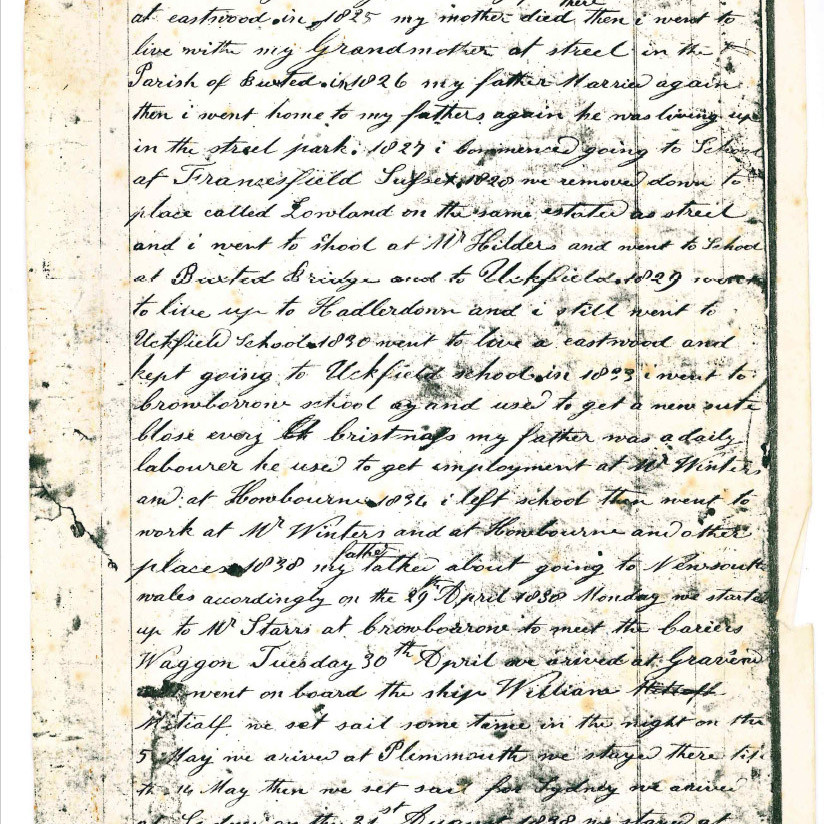 there
at eastwood in 1825 my mother died then i went to
live withe my Grandmother at street in the
Parish of Buxted in 1826 my father Married again
then i went home to my fathers again he was living up
in the street park. 1827 i commenced going to School
at Francesfield Sussex 1828 we removed down to
place called Lowland on the same estate as street
and i went to shool at Mr Hilders and went to School
at Buxted Bridge and to Uckfield. 1829 went
to live up to Hadlerdown and i still went to
Uckfield School 1830 went to live a eastwood and
kept going to Uckfield school in i went to
Crowborrow school and used to get a new sute
Close every Cristmass my father was a daily
labourer he used to get employment at Mr Winters
and at Howbourne 1834 i left school then went to
work at Mr Winters and at Howbourne and other
places 1838 my father talked about going to Newsouth
wales accordingly on the 29th April 1838 Monday we started
up to Mr Starrs at Crowborrow to meet the Cariers
Waggon Tuesday 30th April we arived at Gravend
went on board the ship William
Metcalf we set sail some tame in the night on the
5 May we arived at Plemmouth we stayed there till
th 14 May then we set sail for Sydney we arived
at Sydney on the 31st August 1838 we stayed at